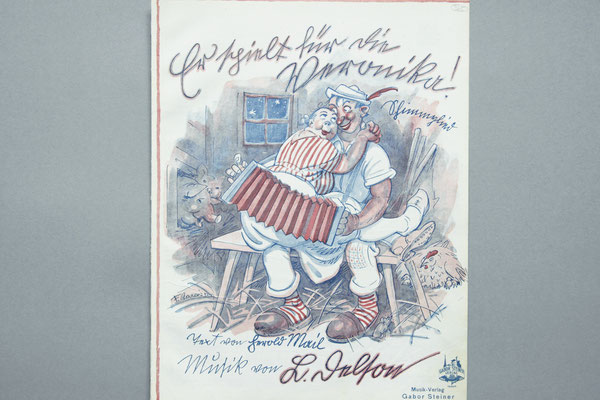 Er spielt für die
Veronika!
Shimmylied
Text von Herold Mail
Musik von L. Delson
Musik-Verlag
Gabor Steiner